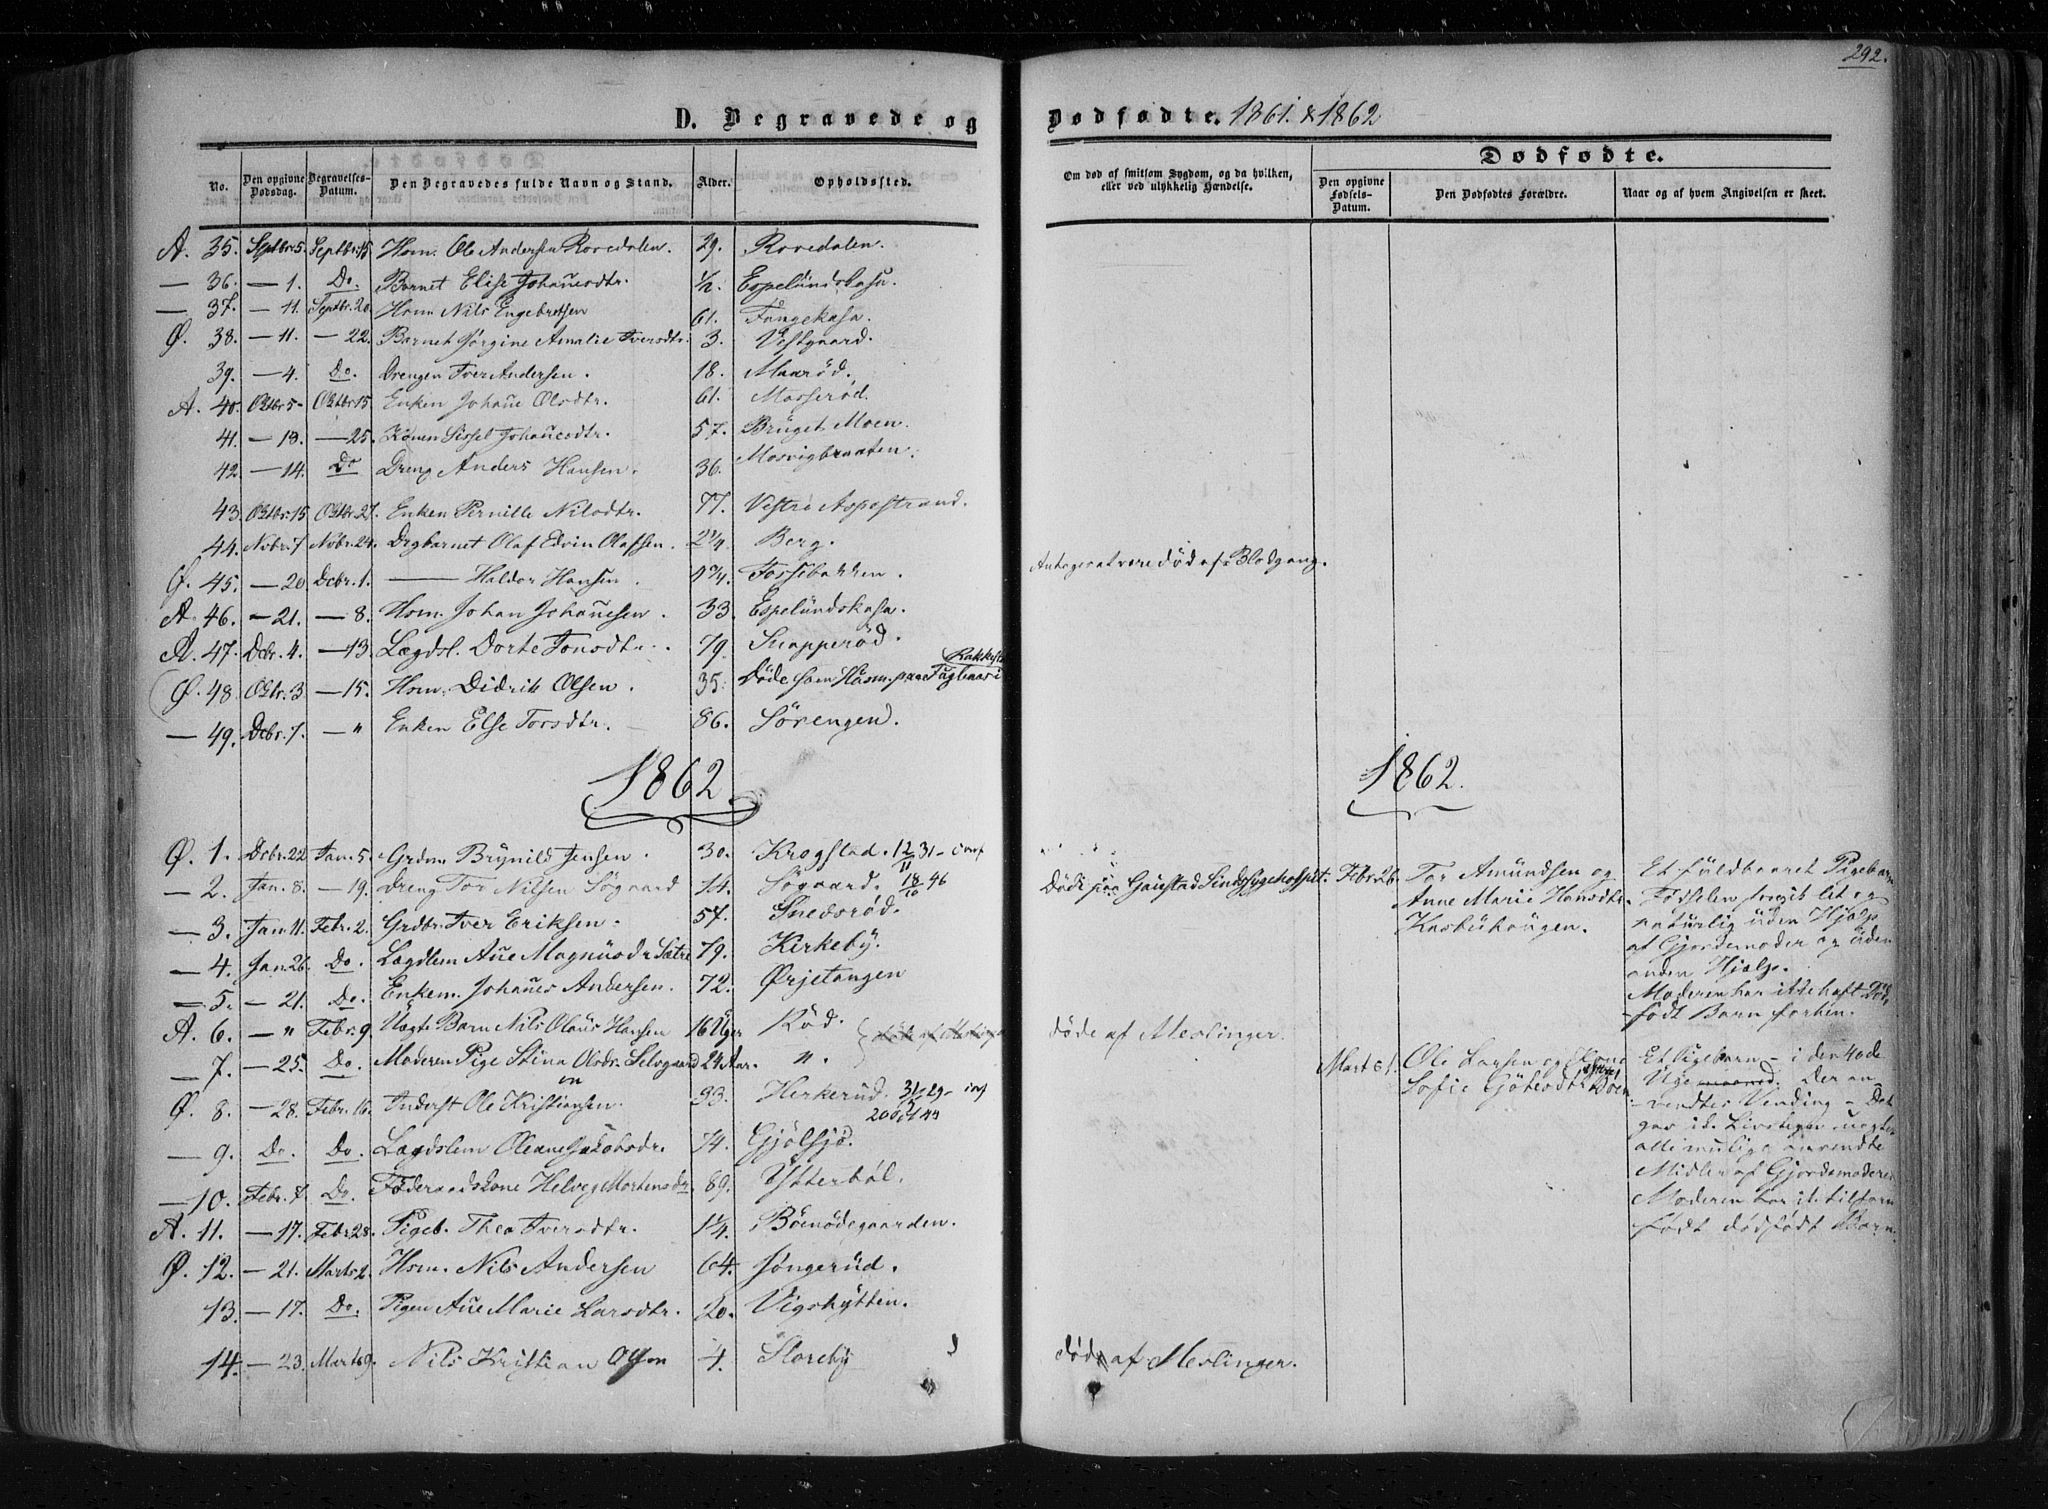 292.
D. Begravede og Dødfødte. 1861. & 1862
No. Den opgivne Dødsdag. Begravelses-Datum. Den Begravedes fulde Navn og Stand. Alder. Opholdssted.
Om død af smitsom Sygdom, og da hvilken, eller ved ulykkelig Hændelse.
Dødfødte.
Den opgivne Fødsels-Datum. Den Dødfødtes Forældre. Naar og af hvem Angivelsen er skeet.
A. 35. Septbr. 5. Septbr. 15 Hsm. Ole Andersen Rovedalen 29. Rovedalen.
— 36. — 1. Do. Barnet Elise Johanesdtr. ½. Espelundskasa.
— 37. — 11. Septbr. 20. Hsm Nils Engebretsen 61. Tangekasa.
Ø. 38. — 11. — 22. Barnet Jørgine Amalie Iversdtr. 3. Vestgaard.
39. — 4. Do. Drengen Iver Andersen. 18. Maarød.
A. 40. Oktbr 5 Oktbr 15 Enken Johane Olsdtr. 61. Mosserød.
41. — 18. — 25. Konen Sissel Johanesdtr. 57. Bruget Moen.
42. — 14. Do Dreng Anders Hansen. 36. Mosvigbraaten.
43. Oktbr. 15 Oktbr. 27. Enken Pernille Nilsdtr. 77. Vestre Aspestrand.
44. Novbr. 7 Novbr. 24. Drgbarnet Olaf Edvin Olafsen. 2¼. Berg.
Ø. 45. — 20 Dcbr. 1. — Haldor Hansen. Fossebakken. Antages at være død af Blodgang.
A. 46. — 21. — 8. Hsm. Johan Johanesen. 33. Espelundskasa.
A. 47. Dcbr. 4. — 13. Lægdsl. Dorte Tonsdtr. 79. Snapperød.
Rakkestad
Ø. 48. Oktbr. 3 — 15. Hsm. Didrik Olsen. 35. Døde som Husm. paa Fuglenæs i
— 49. Dcbr. 7. — " Enken Else Torsdtr. 86. Sørengen.
1862. 1862.
Ø. 1. Dcbr. 22 Jan. 5. Grdm Brynild Jensen. 30. Krogstad. 12/11 31
— 2. Jan. 8. — 19. Dreng Tor Nilsen Søgaard 14. Søgaard. 18/10 46 Døde paa Gaustad Sindssygehospit. Febr. 26. Tor Amundsen og
Anne Marie Hansdtr.
Kasbuhaugen.
Et fuldbaaret Pigebarn
Fødselen foregik let og
naturlig uden Hjælp
af Gjordemoder og uden
anden Hjælp.
Moderen har ikke haft Død-
født Barn forhen.
— 3. Jan. 11. Febr. 2. Grdbr. Iver Eriksen. 54. Snedsrød.
— 4. Jan. 26. Do. Lægdlem Ane Magnusdr Sætre 79. Kirkeby.
— 5. — 21. Do. Enkem. Johanes Andersen. 72. Ørjetangen
A. 6. — " Febr. 9. Uægte Barn Nils Olaus Hansen 16 Uger Rød. døde af Meslinger.
— 7. — 25. Do. Moderen Pige Stina Olsdr. Selvgaard 24 Aar. ".
Marts 1. Ole Larsen og Kone
Sofie Götesdtr Boen
Et Pigebarn — i den 40de
Uge maaned. Der an-
vendtes Vending — Det
gav ik. Livstegn uagtet
alle mulige anvendte
Midler af Gjordemoderen
Moderen har ik. tilforn
født dødfødt Barn.
Ø. 8. — 28. Febr. 16. Inderst Ole Kristiansen. 33. Herkerud.
— 9. Do. Do. Lægdslem Oleane Jakobsdr. 74. Gjølsjø.
— 10. Febr. 7. Do. Føderaadskone Helveg Mortensdr. 89. Ytterbøl.
A. 11. — 17. Febr. 23. Pigeb. Thea Iversdtr. 1¼. Böenødegaarden.
Ø. 12. — 21. Marts 2. Hsm. Nils Andersen 64. Jongerud.
13. — 17. Do. Pigen Ane Marie Larsdtr. 20. Vigshytten.
14. — 23. Marts 9. Nils Kristian Olsen 4. Storeby døde af Meslinger.